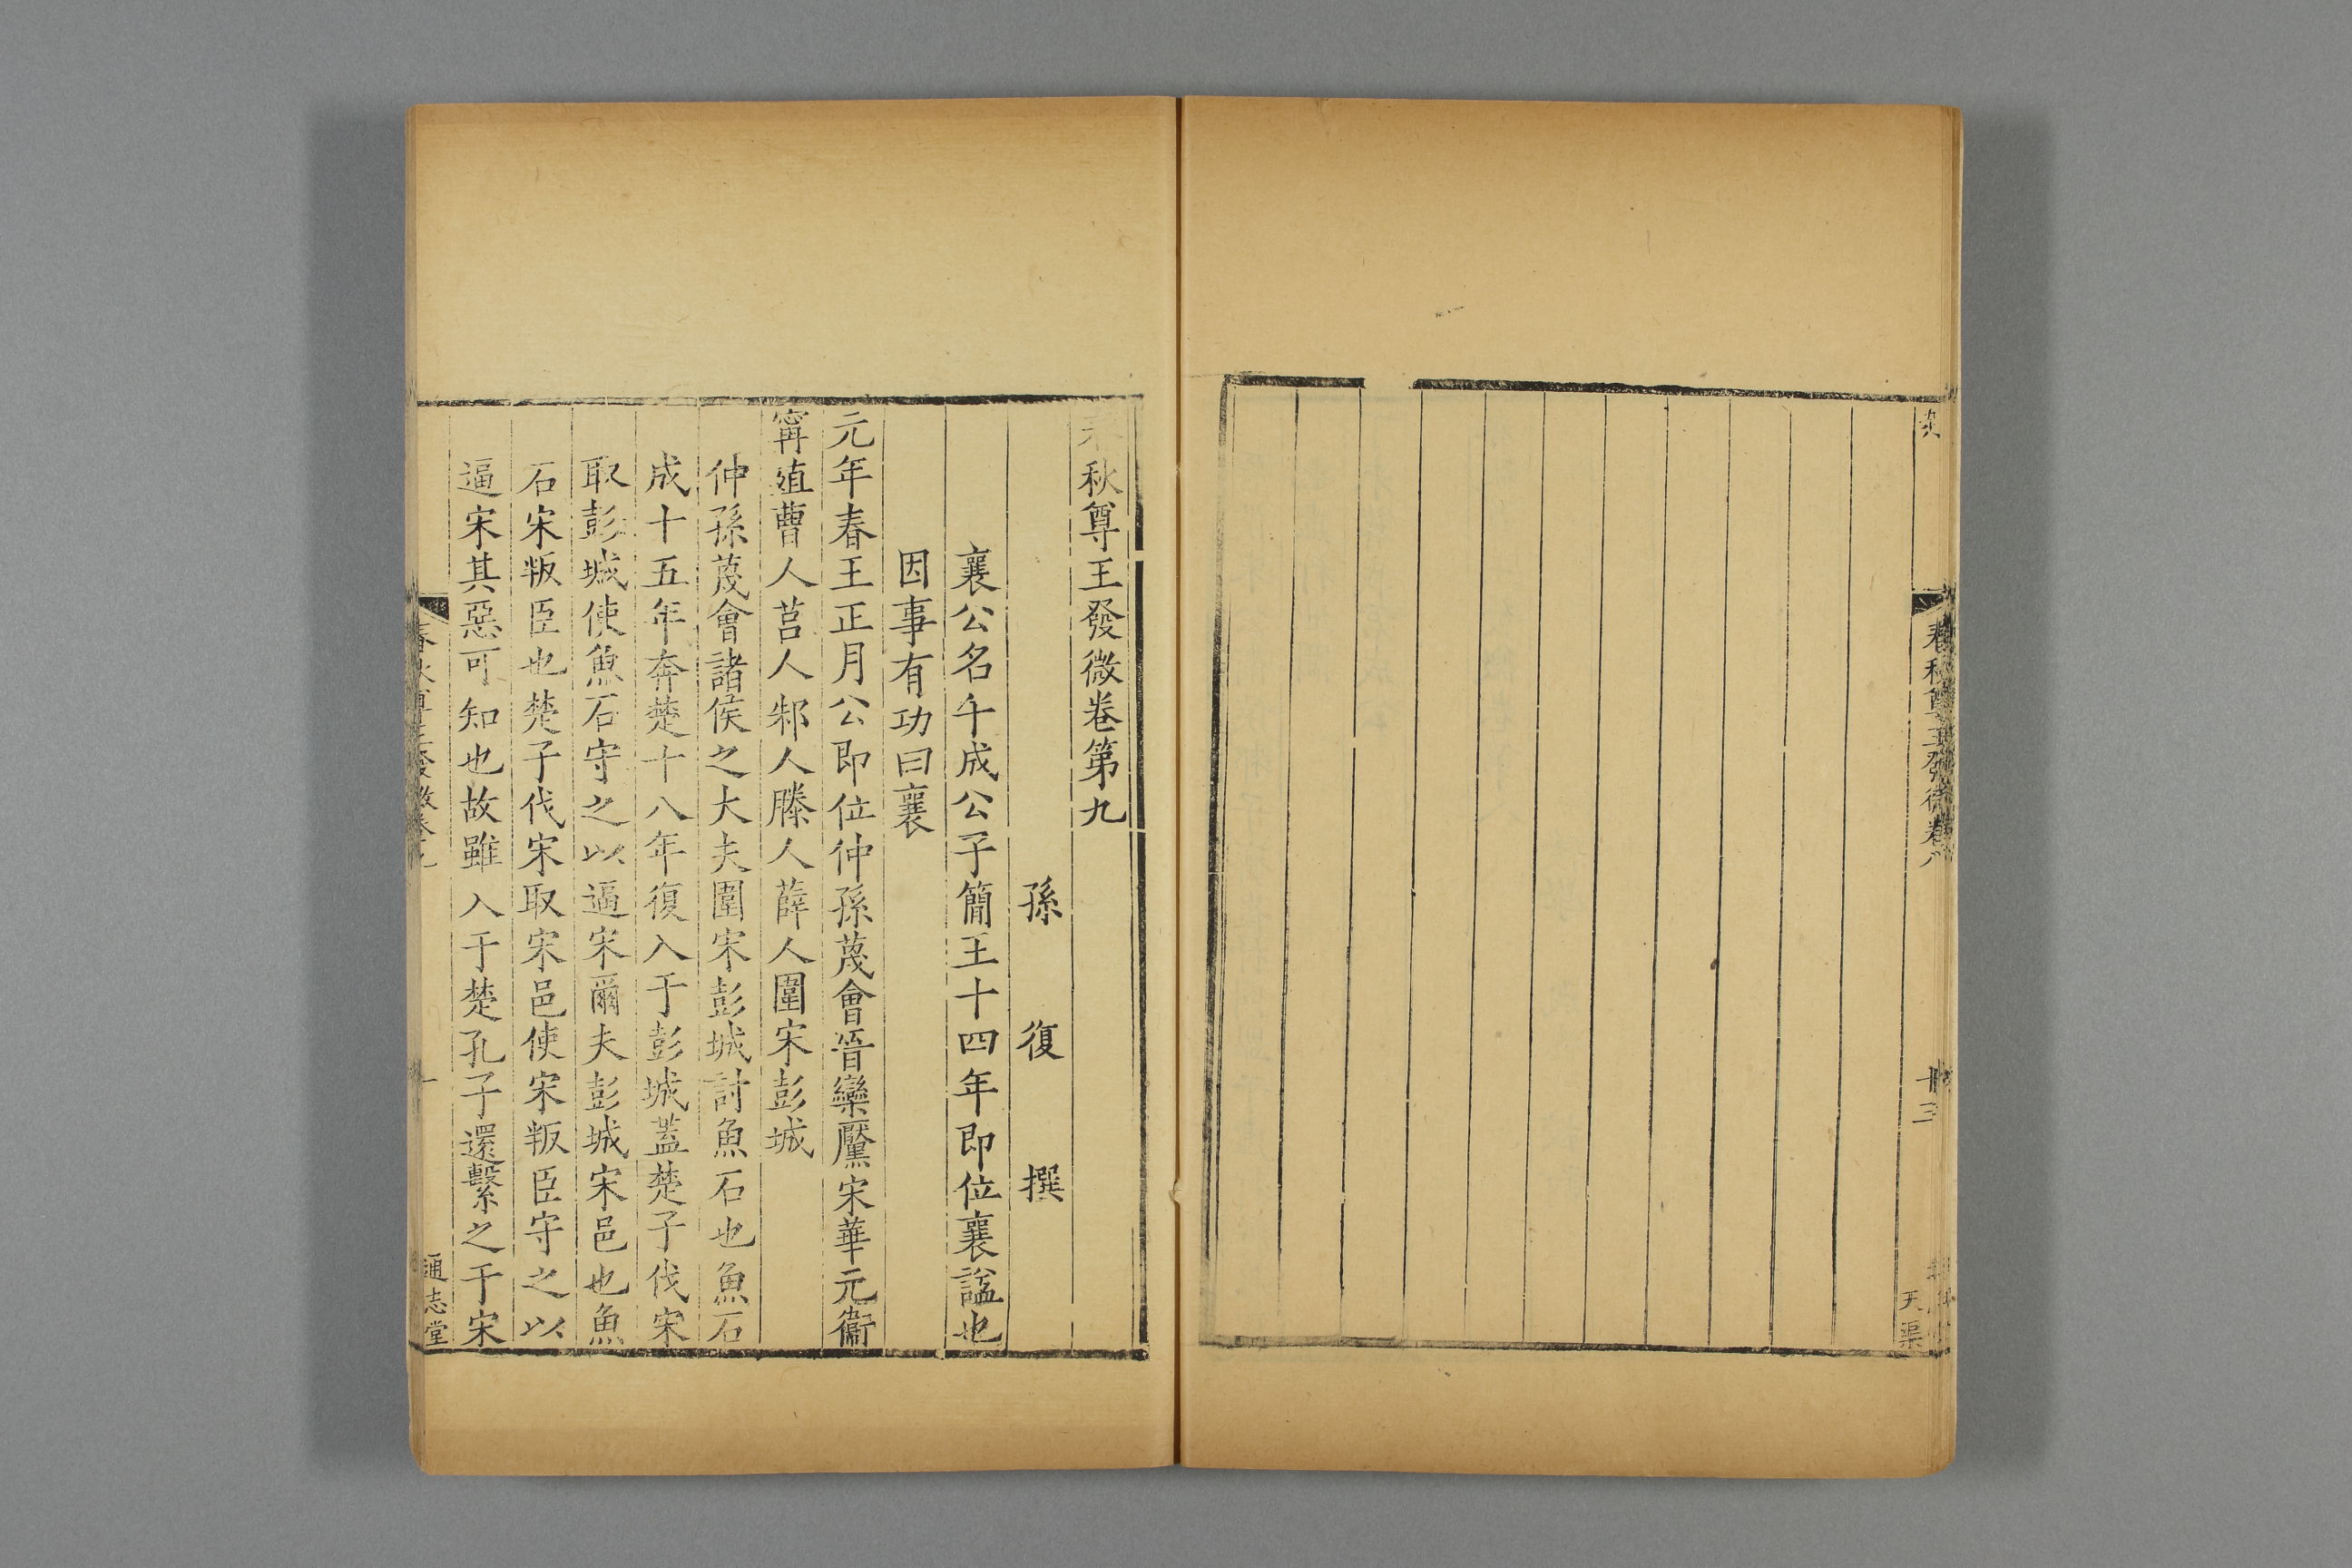 春秋尊王發微卷八
十三
天渠
春秋尊王發微卷第九
孫復撰
襄公名午成公子簡王十四年即位襄諡也
因事有功曰襄
元年春王正月公即位仲孫蔑會晉欒黶宋華元衞
寗殖曹人莒人邾人滕人薛人圍宋彭城
仲孫蔑會諸侯之大夫圍宋彭城討魚石也魚石
成十五年奔楚十八年復入于彭城葢楚子伐宋
取彭城使魚石守之以逼宋爾夫彭城宋邑也魚
石宋叛臣也楚子伐宋取宋邑使宋叛臣守之以
逼宋其惡可知也故雖入于楚孔子還繫之于宋
春秋尊王發微卷九
一
通志堂